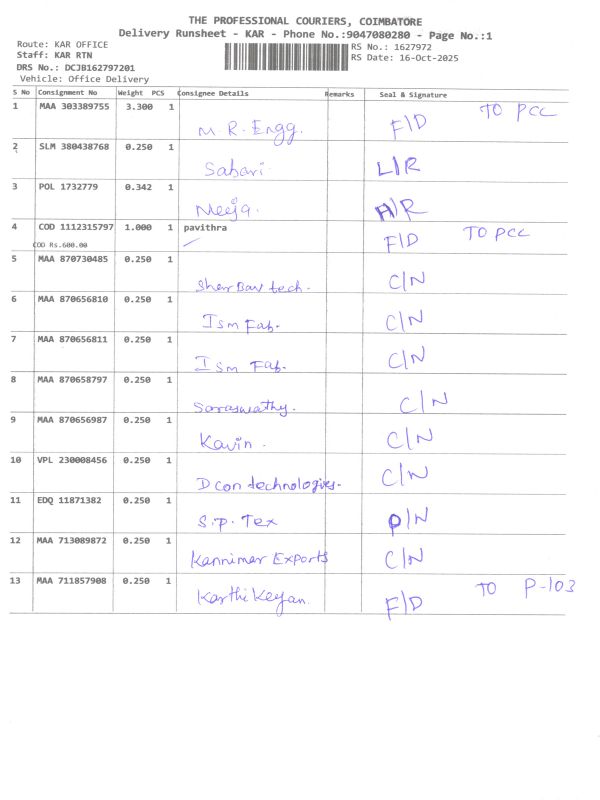 THE PROFESSIONAL COURIERS, COIMBATORE
Delivery Runsheet - KAR - Phone No.:9047080280 - Page No.:1
Route: KAR OFFICE RS No.: 1627972
Staff: KAR RTN RS Date: 16-Oct-2025
DRS No.: DCJB162797201
Vehicle: Office Delivery
S No Consignment No Weight PCS Consignee Details Remarks Seal & Signature
1 MAA 303389755 3.300 1 M.R. Engg. F/D TO PCC
2 SLM 380438768 0.250 1 Sabari. L/R
3 POL 1732779 0.342 1 Meeja. A/R
4 COD 1112315797 1.000 1 pavithra F/D TO PCC
COD Rs.600.00
5 MAA 870730485 0.250 1 tech. C/N
6 MAA 870656810 0.250 1 Ism Fab. C/N
7 MAA 870656811 0.250 1 Ism Fab. C/N
8 MAA 870658797 0.250 1 Saraswathy. C/N
9 MAA 870656987 0.250 1 Kavin. C/N
10 VPL 230008456 0.250 1 Dcon technologies. C/N
11 EDQ 11871382 0.250 1 S.P. Tex P/N
12 MAA 713089872 0.250 1 Kannimar Exports C/N
13 MAA 711857908 0.250 1 Karthikeyan. F/D TO P-103